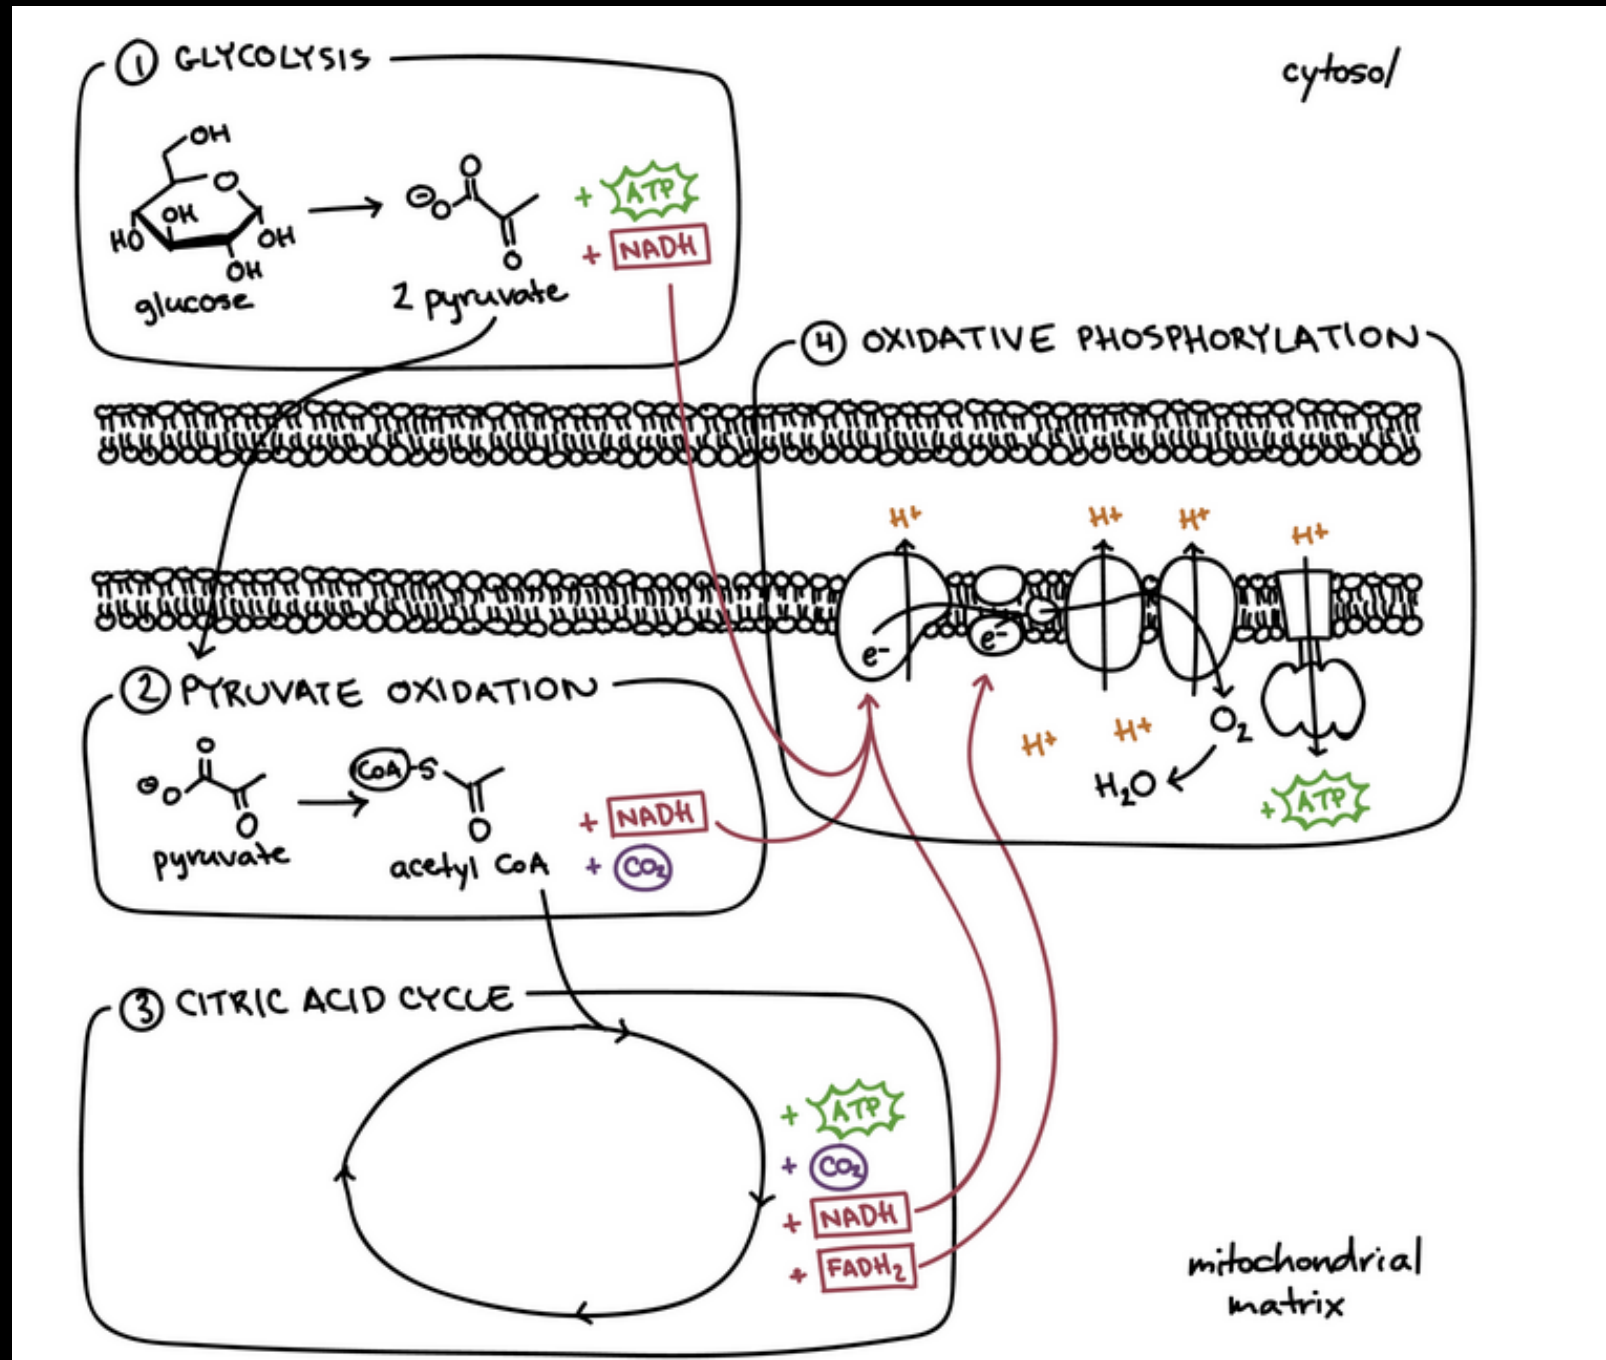 ① GLYCOLYSIS
cytosol
OH
O
OH
HO
OH
OH
glucose
O
⊖O
O
2 pyruvate
+ ATP
+ NADH
④ OXIDATIVE PHOSPHORYLATION
H+
H+
H+
H+
e-
e-
H+
H+
O2
H2O
+ ATP
② PYRUVATE OXIDATION
O
⊖O
O
pyruvate
CoA-S
O
acetyl CoA
+ NADH
+ CO2
③ CITRIC ACID CYCLE
+ ATP
+ CO2
+ NADH
+ FADH2
mitochondrial
matrix